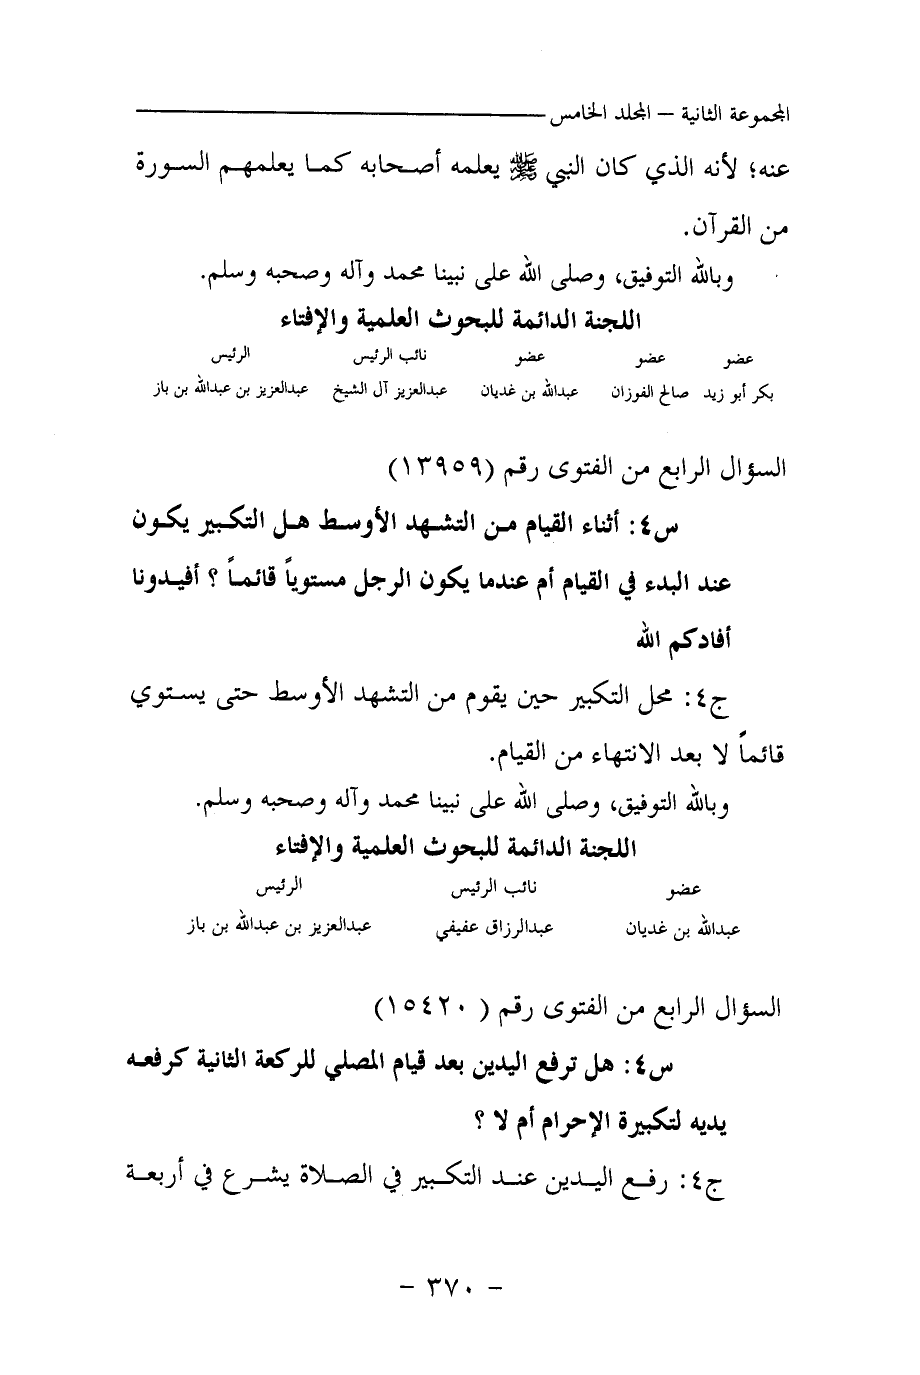 المجموعة الثانية – المجلد الخامس
عنه؛ لأنه الذي كان النبي ﷺ يعلمه أصحابه كما يعلمهم السورة
من القرآن.
وبالله التوفيق، وصلى الله على نبينا محمد وآله وصحبه وسلم.
اللجنة الدائمة للبحوث العلمية والإفتاء
عضو عضو عضو نائب الرئيس الرئيس
بكر أبو زيد صالح الفوزان عبدالله بن غديان عبدالعزيز آل الشيخ عبدالعزيز بن عبدالله بن باز
السؤال الرابع من الفتوى رقم (١٣٩٥٩)
س٤: أثناء القيام من التشهد الأوسط هل التكبير يكون
عند البدء في القيام أم عندما يكون الرجل مستوياً قائماً ؟ أفيدونا
أفادكم الله
ج٤: محل التكبير حين يقوم من التشهد الأوسط حتى يستوي
قائماً لا بعد الانتهاء من القيام.
وبالله التوفيق، وصلى الله على نبينا محمد وآله وصحبه وسلم.
اللجنة الدائمة للبحوث العلمية والإفتاء
عضو نائب الرئيس الرئيس
عبدالله بن غديان عبدالرزاق عفيفي عبدالعزيز بن عبدالله بن باز
السؤال الرابع من الفتوى رقم ( ١٥٤٢٠)
س٤: هل ترفع اليدين بعد قيام المصلي للركعة الثانية كرفعه
يديه لتكبيرة الإحرام أم لا ؟
ج٤: رفع اليدين عند التكبير في الصلاة يشرع في أربعة
– ٣٧٠ –